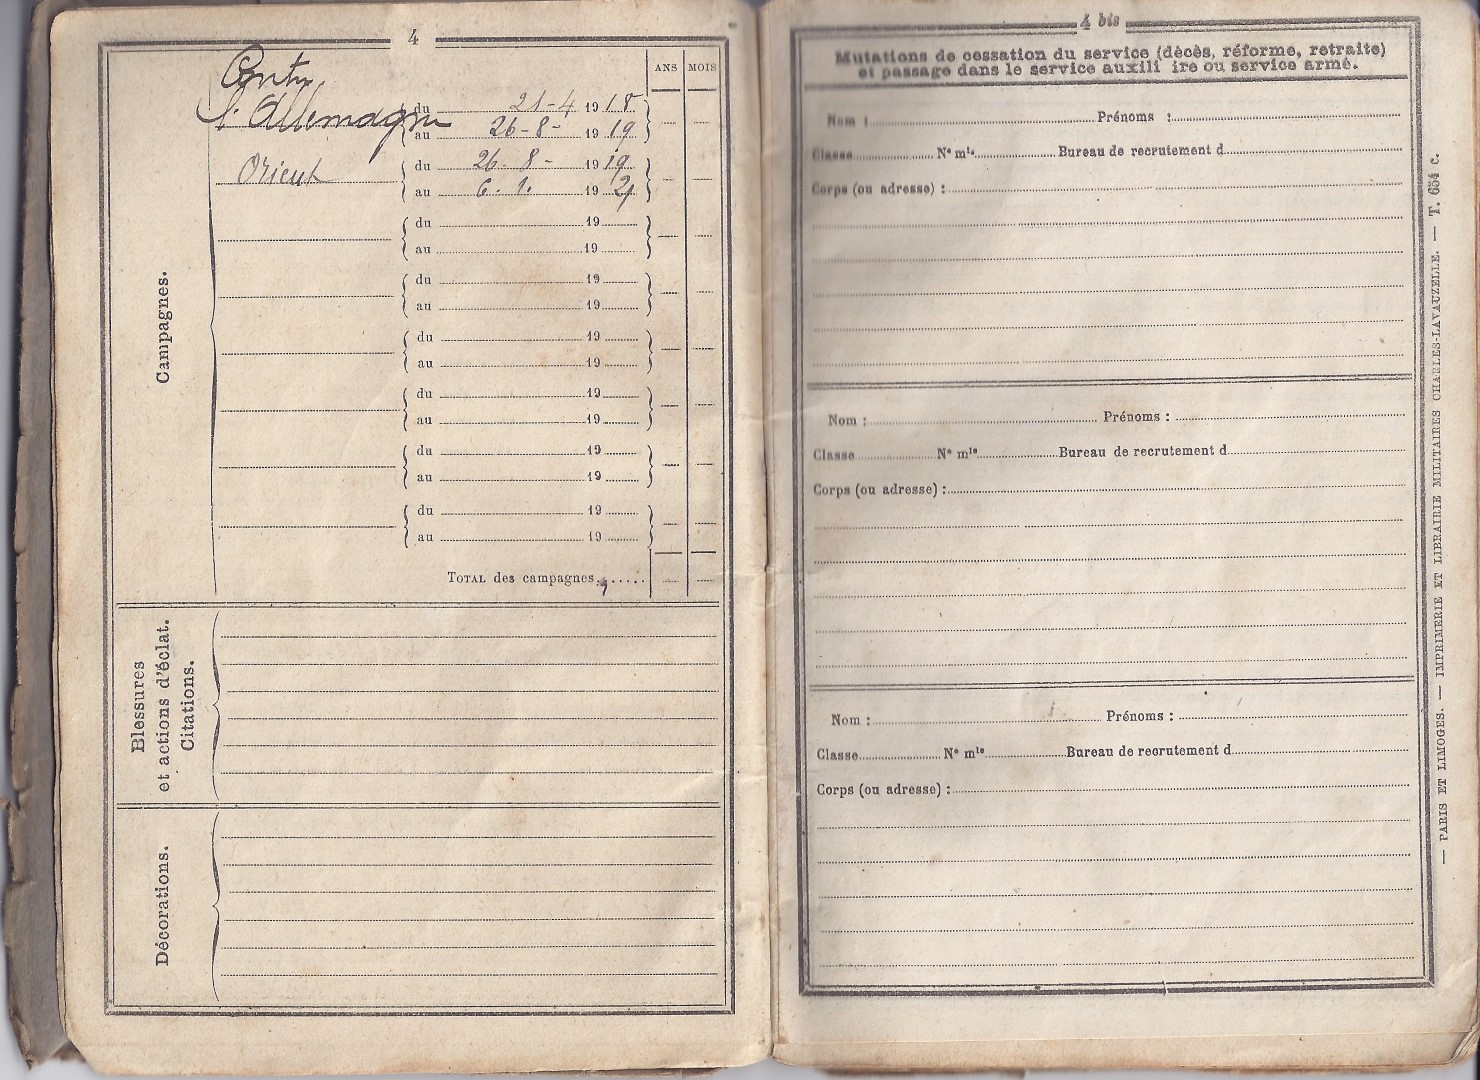 4
ANS MOIS
Contre
l'Allemagne
du 21-4 1918
au 26-8- 1919
Orient
du 26-8- 1919
au 6.1. 1921
du 19
au 19
du 19
au 19
du 19
au 19
du 19
au 19
du 19
au 19
du 19
au 19
Campagnes.
TOTAL des campagnes
Blessures
et actions d'éclat.
Citations.
Décorations.
4 bis
Mutations de cessation du service (décès, réforme, retraite)
et passage dans le service auxili ire ou service armé.
Nom : Prénoms :
Classe N° mle Bureau de recrutement d
Corps (ou adresse) :
Nom : Prénoms :
Classe N° mle Bureau de recrutement d
Corps (ou adresse) :
Nom : Prénoms :
Classe N° mle Bureau de recrutement d
Corps (ou adresse) :
— PARIS ET LIMOGES. — IMPRIMERIE ET LIBRAIRIE MILITAIRES CHARLES-LAVAUZELLE. — T. 654 c.